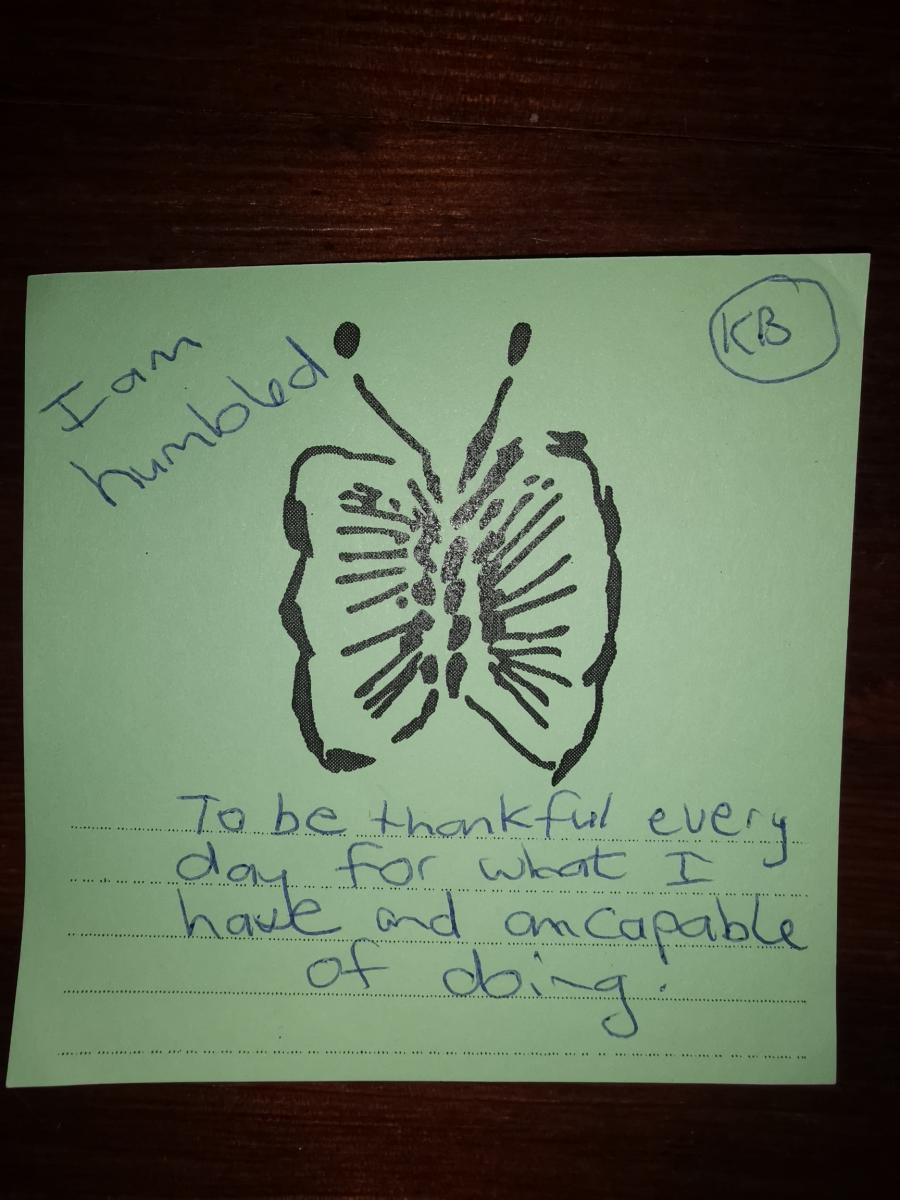 I am
humbled
KB
To be thankful every
day for what I
have and am capable
of doing.